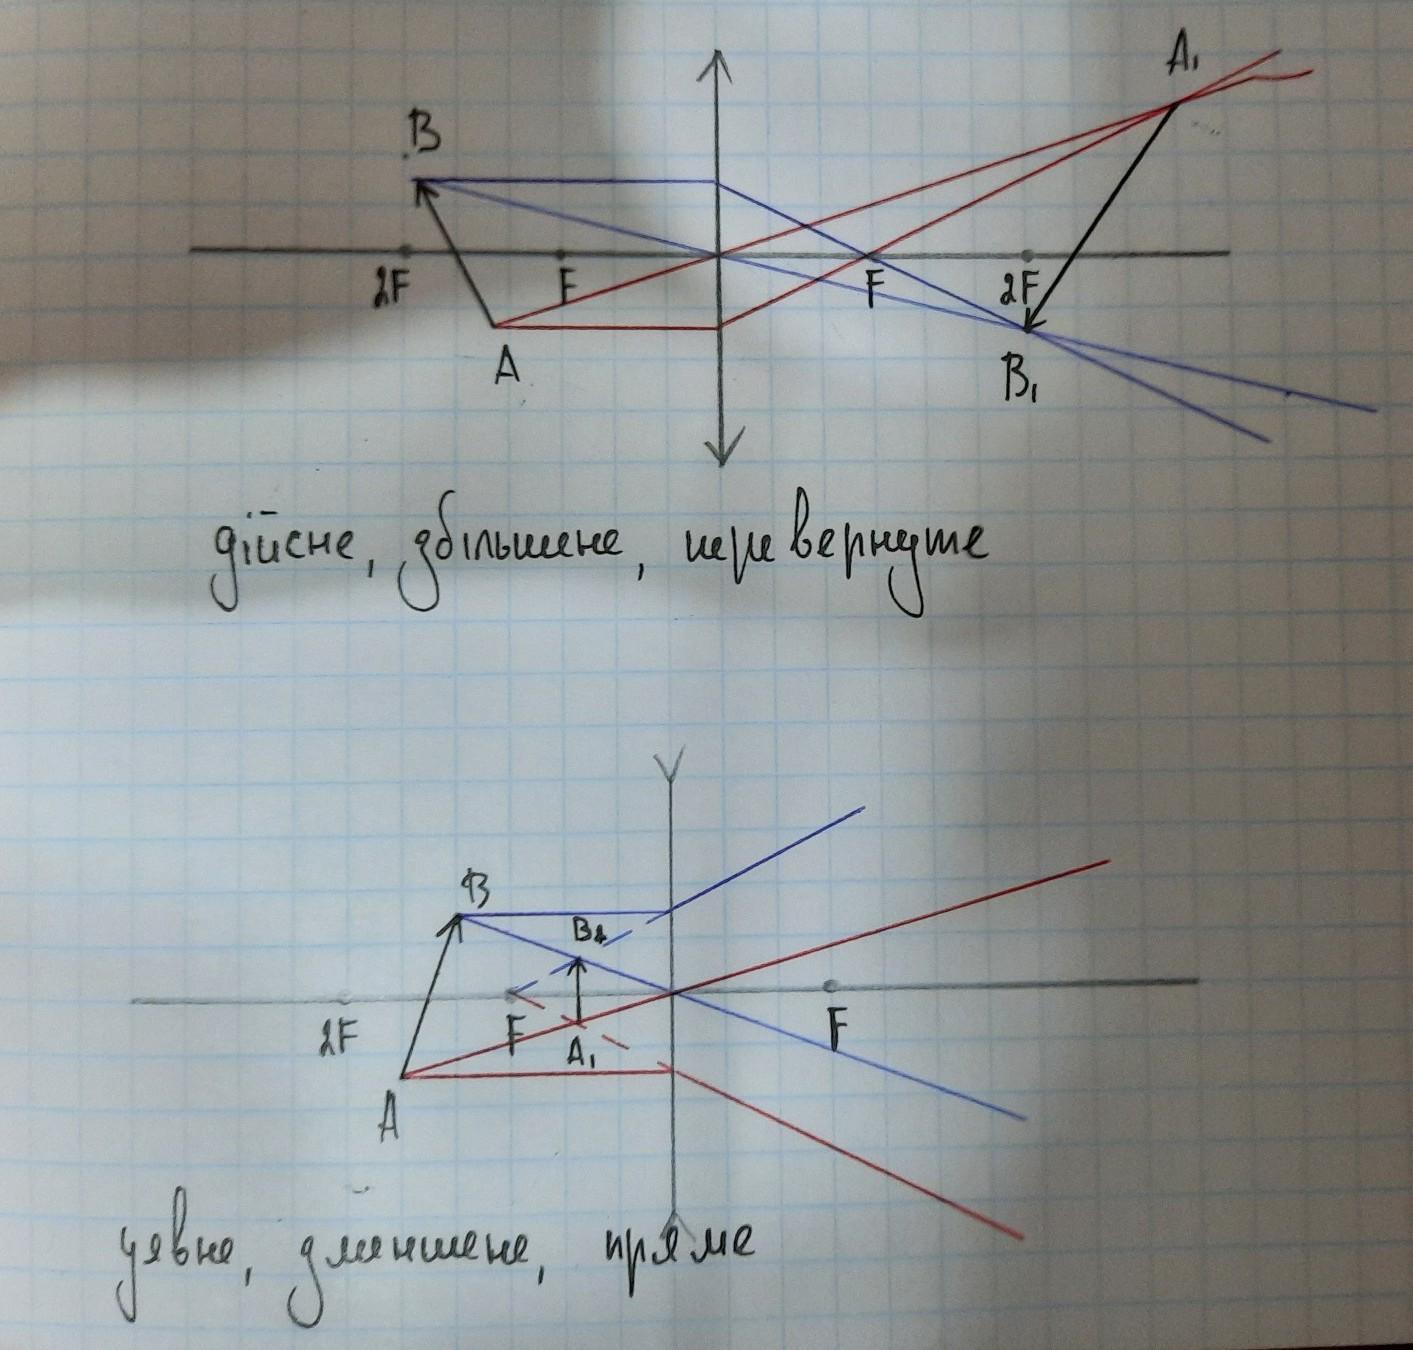 A₁
B
2F F F 2F
A B₁
дійсне, збільшене, перевернуте
B
B₁
2F F F
A₁
A
уявне, зменшене, пряме